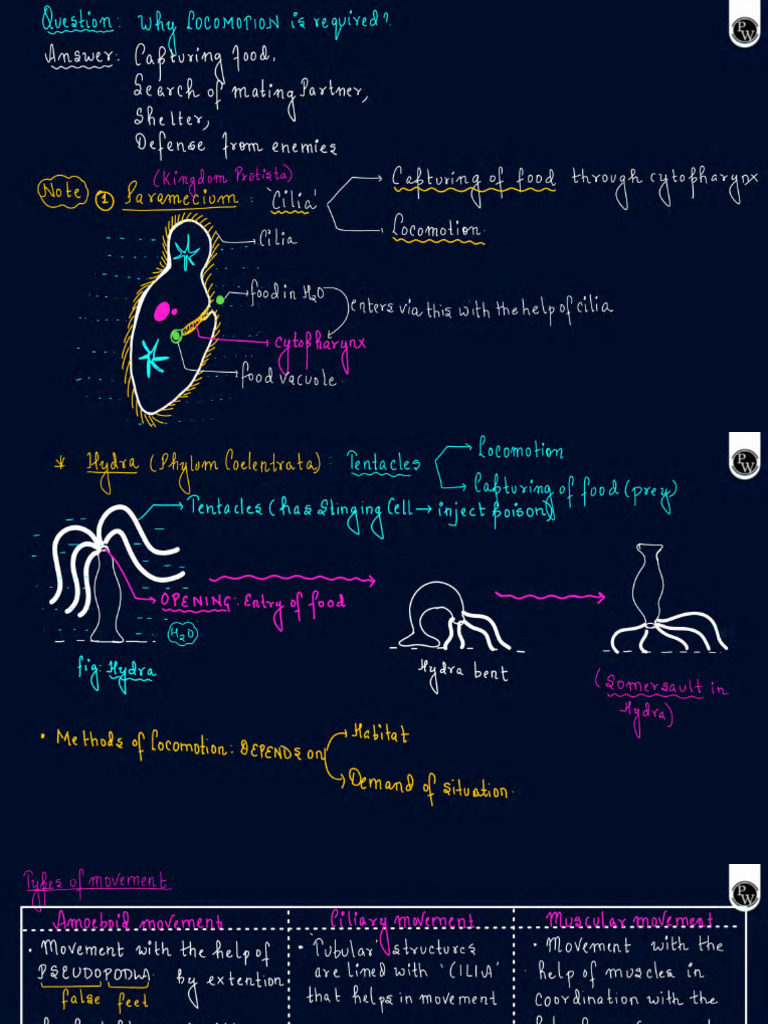 Question: Why LOCOMOTION is required?
PW
Answer: Capturing food,
Search of mating Partner,
Shelter,
Defense from enemies
(Kingdom Protista)
Note ① Paramecium: 'Cilia'
Capturing of food through cytopharynx
Locomotion
Cilia
food in H2O
enters via this with the help of cilia
cytopharynx
food vacuole
PW
* Hydra (Phylum Coelentrata): Tentacles
Locomotion
Capturing of food (prey)
Tentacles (has Stinging Cell → inject poison)
OPENING: Entry of food
H2O
fig: Hydra
Hydra bent
(Somersault in
Hydra)
• Methods of locomotion: DEPENDS on
Habitat
Demand of situation
PW
Types of movement
Amoeboid movement
• Movement with the help of
PSEUDOPODIA by extention
false feet
Ciliary movement
• 'Tubular' structures
are lined with 'CILIA'
that helps in movement
Muscular movement
• Movement with the
help of muscles in
coordination with the